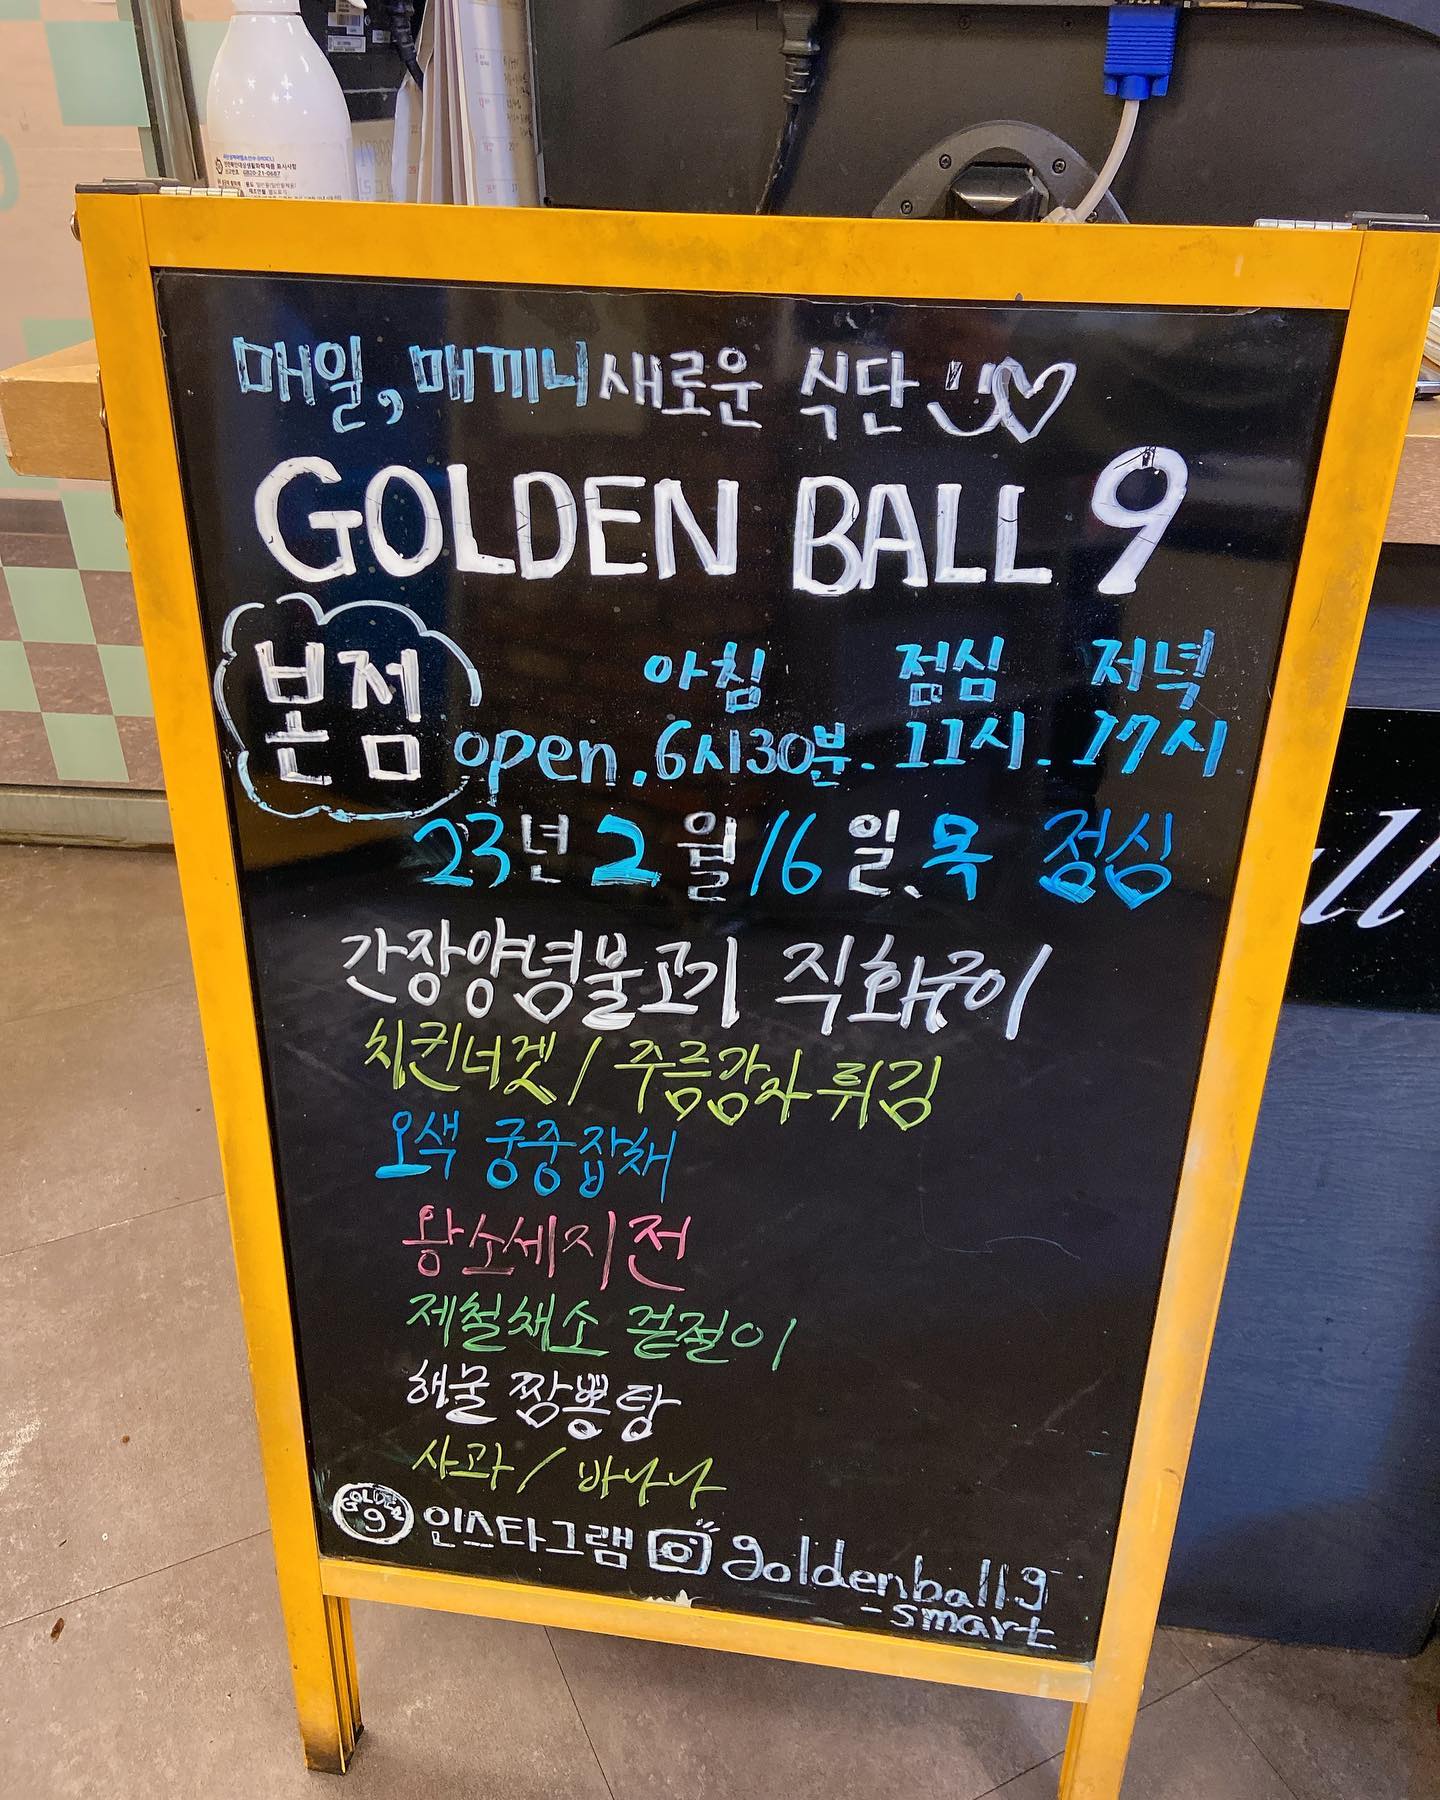 매일, 매끼니 새로운 식단
GOLDEN BALL 9
본점
아침 점심 저녁
open. 6시30분. 11시. 17시
23년 2월 16일、목 점심
간장양념불고기 직화구이
치킨너겟 / 주름감자튀김
오색 궁중잡채
왕소세지전
제철채소 겉절이
해물 짬뽕탕
사과 / 바나나
GOLDEN 9 인스타그램 goldenball9
-smart